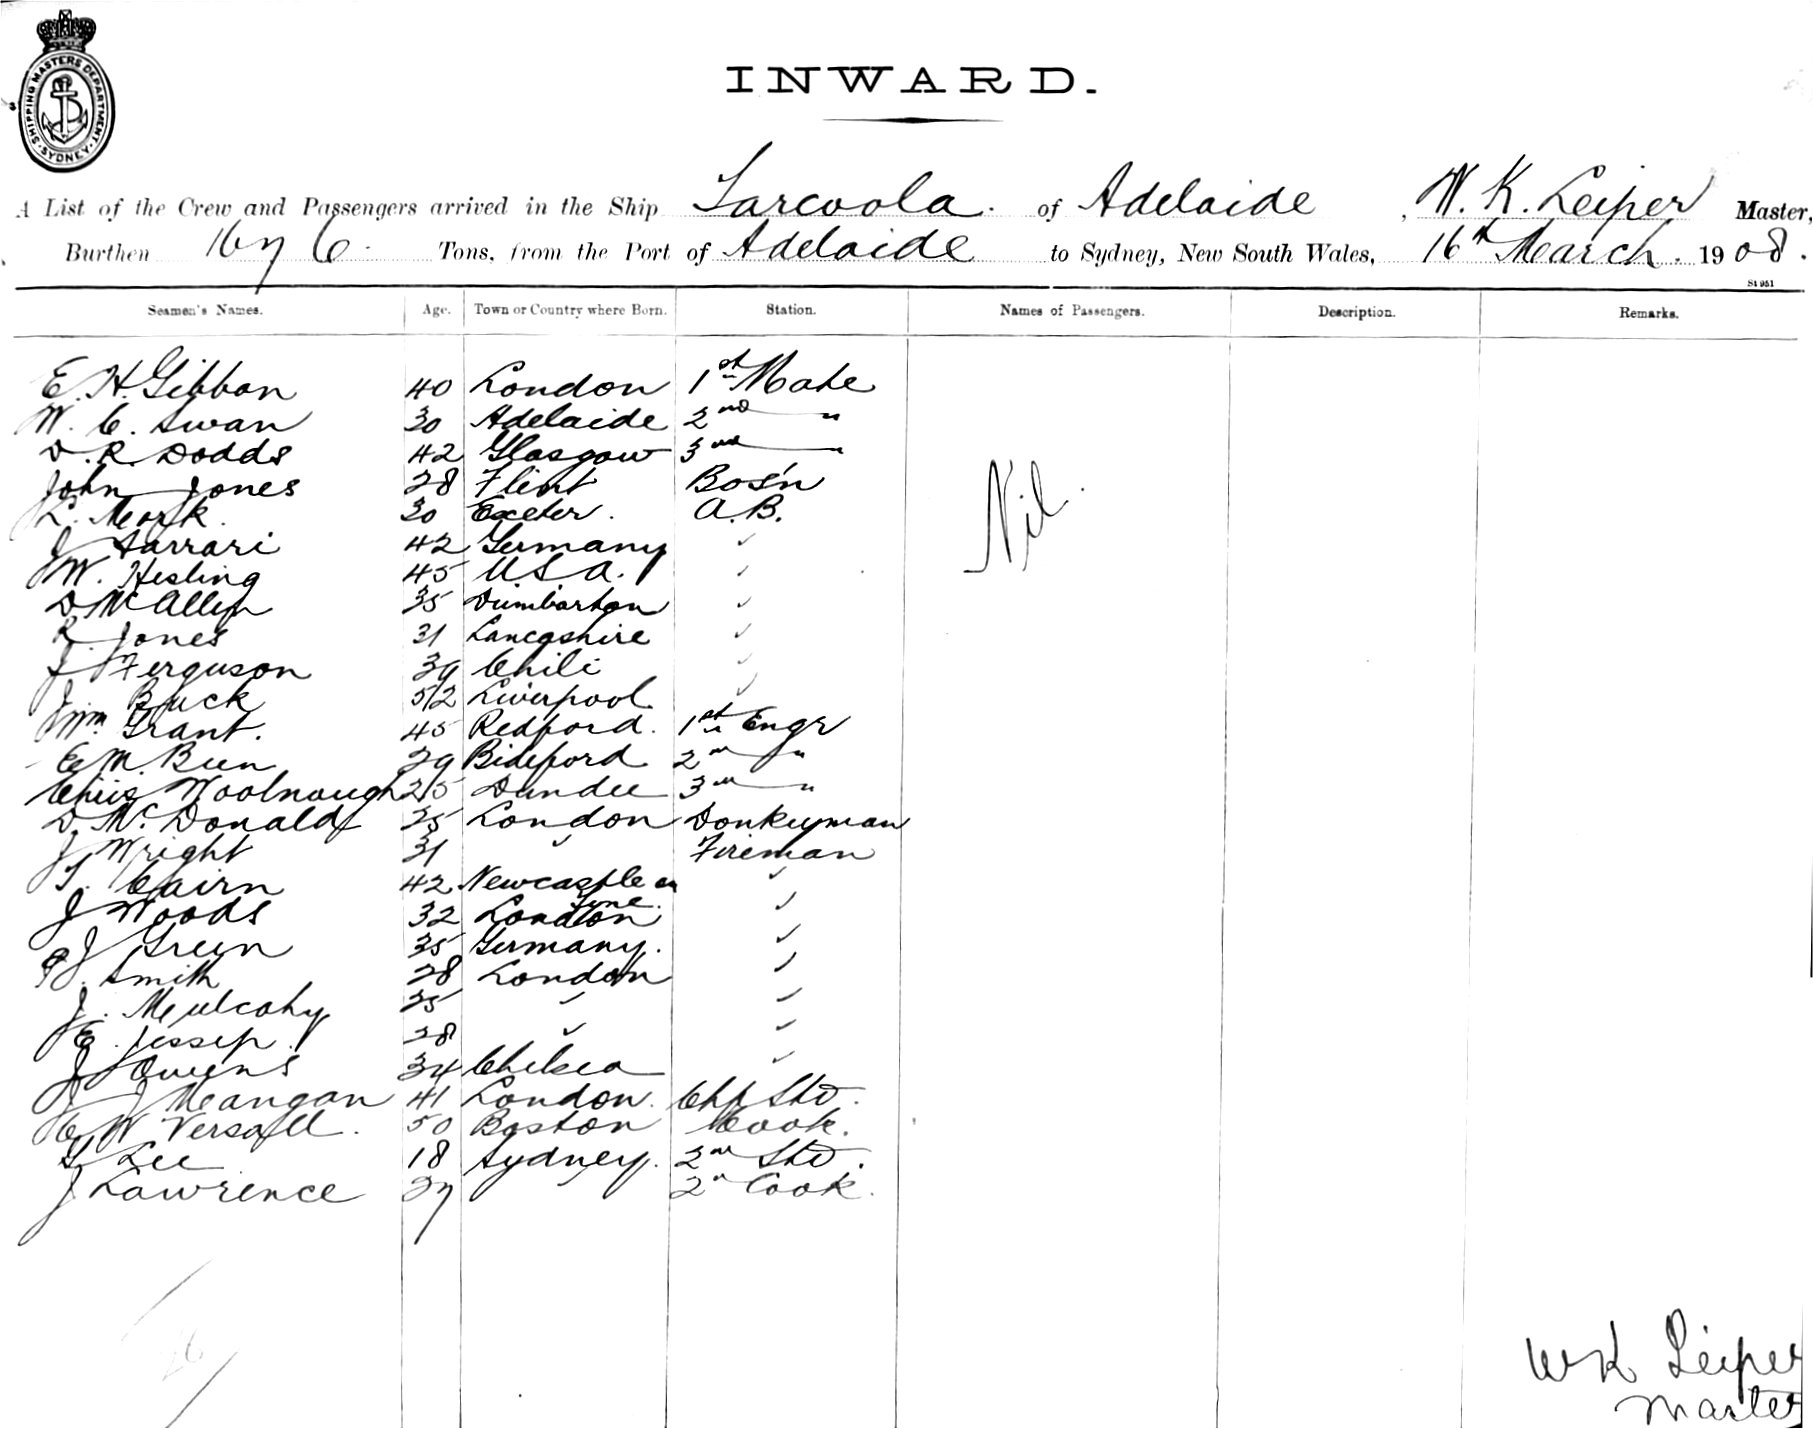 SHIPPING MASTERS DEPARTMENT. SYDNEY.
INWARD.
A List of the Crew and Passengers arrived in the Ship Tarcoola. of Adelaide, W. K. Leiper Master,
Burthen 1676. Tons, from the Port of Adelaide to Sydney, New South Wales, 16th March. 1908.
St 951
Seamen's Names. Age. Town or Country where Born. Station. Names of Passengers. Description. Remarks.
E. H. Gibbon 40 London 1st Mate
W. C. Swan 30 Adelaide 2nd "
D. R. Dodds 42 Glasgow 3rd "
John Jones 28 Flint Bos'n
L. Mark. 30 Exeter. A.B.
J Farrari 42 Germany "
W. Hesling 45 U S A. "
D McAllen 35 Dumbarton "
R. Jones 31 Lancashire "
J. Ferguson 39 Chili "
J. Buck 52 Liverpool "
Wm. Grant. 45 Redford. 1st Engr
E M. Bun 29 Bideford 2nd "
Chris Woolnough 25 Dundee 3rd "
D. McDonald 25 London Donkeyman
J Wright 31 " Fireman
T. Cairn 42 Newcastle on Tyne. "
J Woods 32 London "
J Green 35 Germany. "
Smith 28 London "
J. Mulcahy 25 " "
E. Jessep. 28 " "
J Owens 34 Chelsea "
J J Mangan 41 London. Chf Std.
C W Versall. 50 Boston Cook.
Lee 18 Sydney. 2nd Std.
J Lawrence 27 " 2n Cook.
Nil.
26
W K Leiper
Master